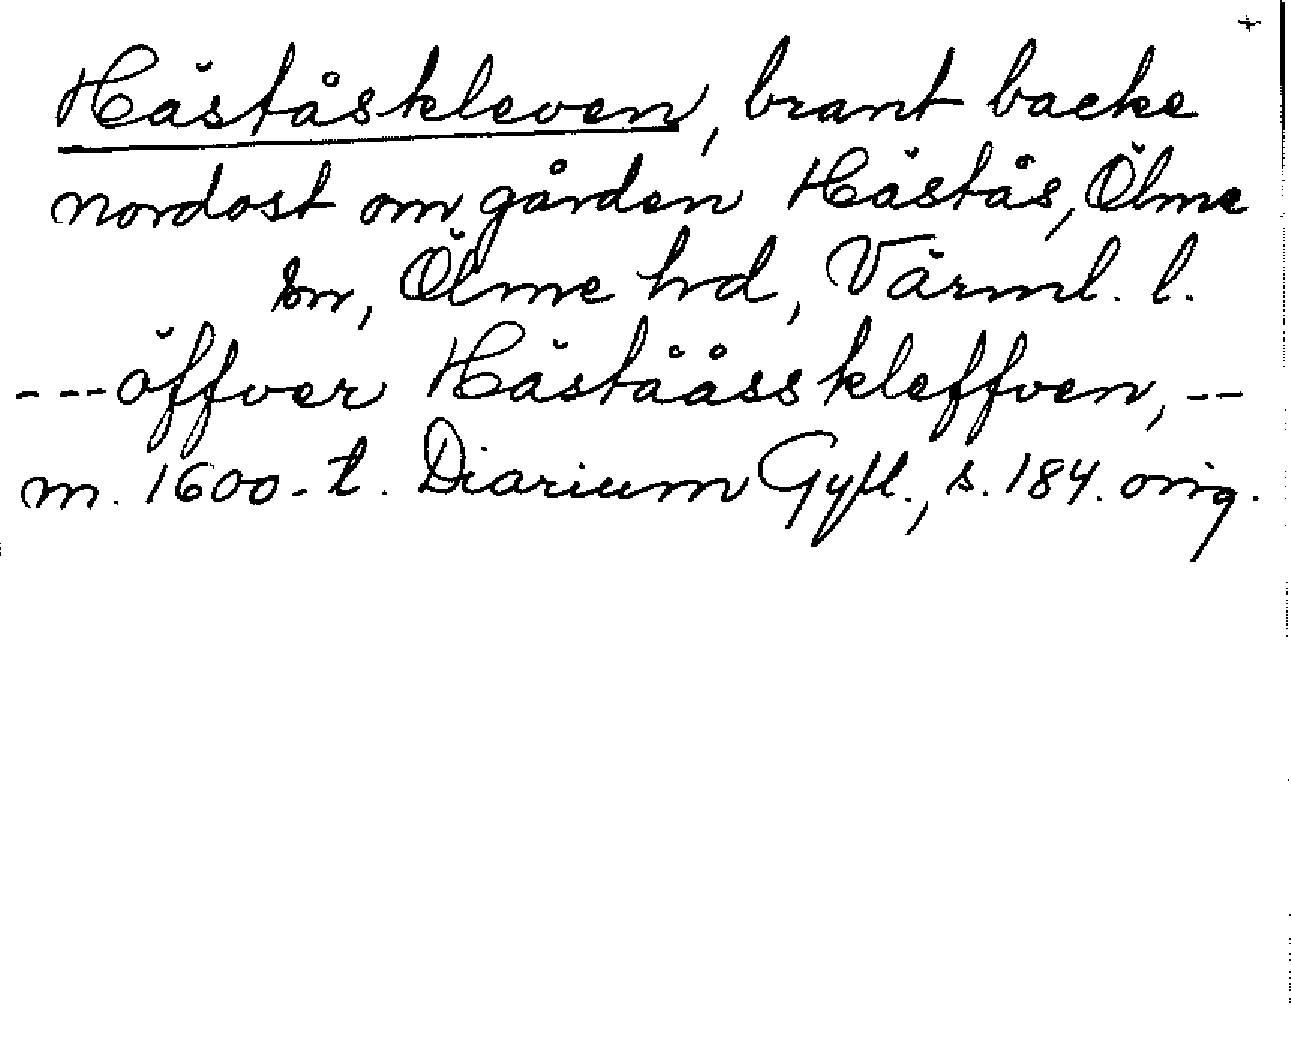 +
Häståskleven, brant backe
nordost om gården Häståś, Ölme
sn, Ölme hrd, Värml. l.
---öffver Hästååsskleffven, --
m. 1600-t. Diarium Gyll., s. 184. orig.